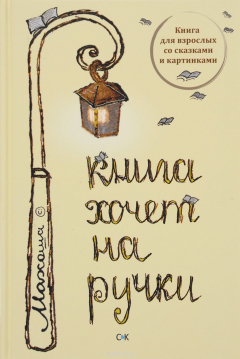 Книга
для взрослых
со сказками
и картинками
Махоша ©
книга
хочет
на
ручки
СК